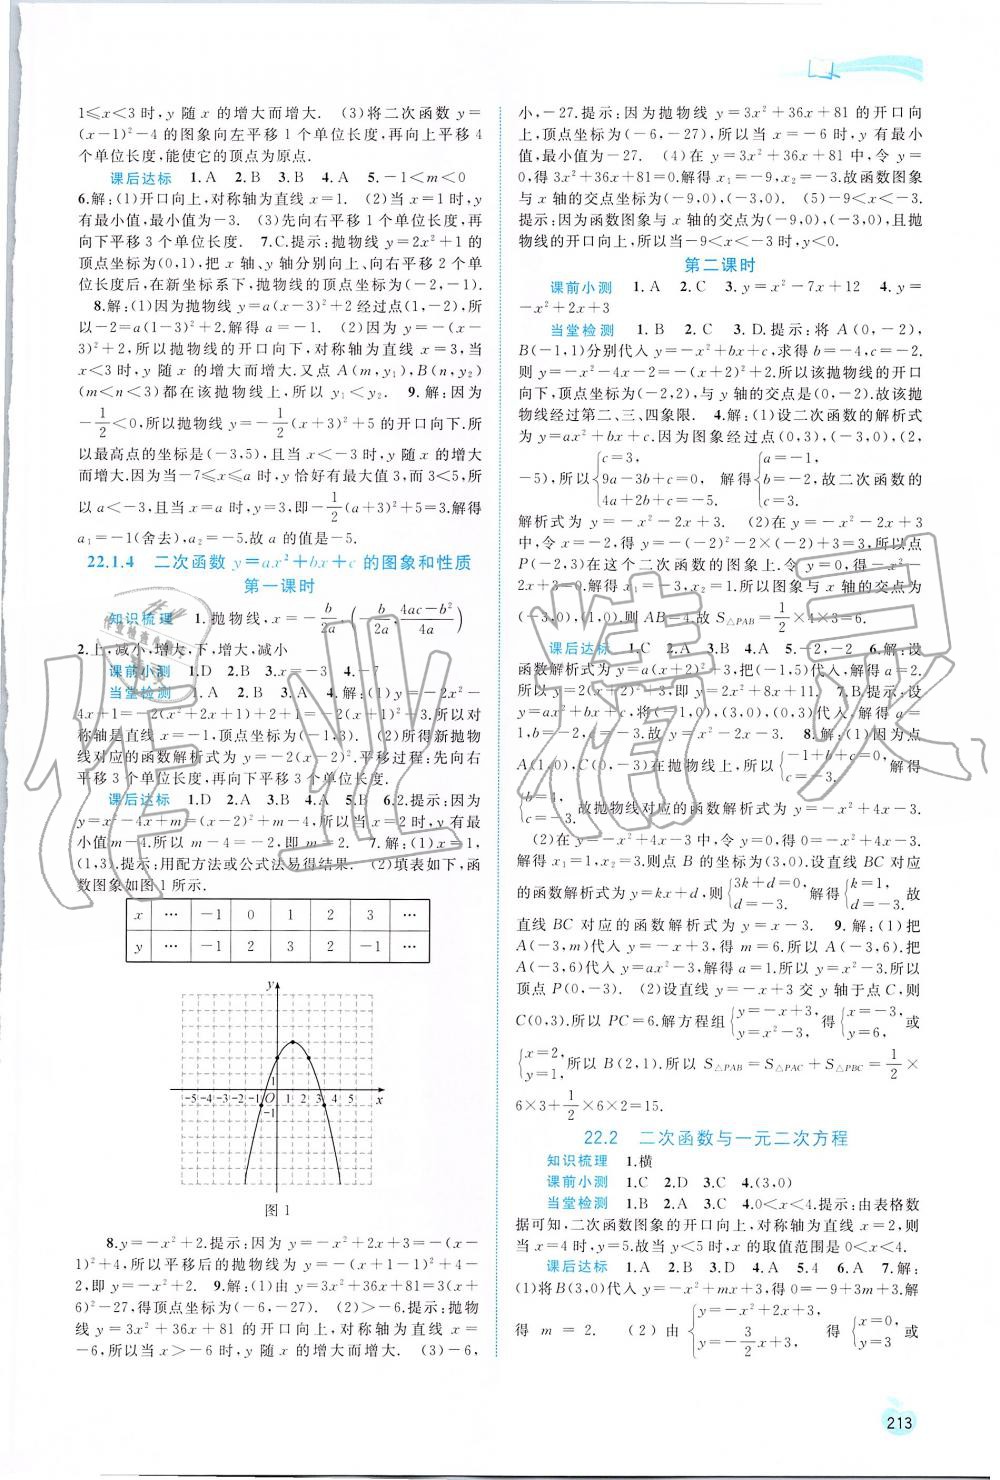 1≤x<3时,y随x的增大而增大. (3)将二次函数y=
(x-1)²-4的图象向左平移1个单位长度,再向上平移4
个单位长度,能使它的顶点为原点.
课后达标 1.A 2.B 3.B 4.A 5.-1<m<0
6.解:(1)开口向上,对称轴为直线x=1. (2)当x=1时,y
有最小值,最小值为-3. (3)先向右平移1个单位长度,再
向下平移3个单位长度. 7.C.提示:抛物线y=2x²+1的
顶点坐标为(0,1),把x轴、y轴分别向上、向右平移2个单
位长度后,在新坐标系下,抛物线的顶点坐标为(-2,-1).
8.解:(1)因为抛物线y=a(x-3)²+2经过点(1,-2),所
以-2=a(1-3)²+2.解得a=-1. (2)因为y=-(x-
3)²+2,所以抛物线的开口向下,对称轴为直线x=3,当
x<3时,y随x的增大而增大.又点A(m,y₁),B(n,y₂)
(m<n<3)都在该抛物线上,所以y₁<y₂. 9.解:因为
-1/2<0,所以抛物线y=-1/2(x+3)²+5的开口向下.所
以最高点的坐标是(-3,5),且当x<-3时,y随x的增大
而增大.因为当-7≤x≤a时,y恰好有最大值3,3<5,所
以a<-3,且当x=a时,y=3,即-1/2(a+3)²+5=3.解得
a₁=-1(舍去),a₂=-5.故a的值是-5.
22.1.4 二次函数y=ax²+bx+c的图象和性质
第一课时
知识梳理 1.抛物线,x=-b/2a,(-b/2a,(4ac-b²)/4a)
2.上,减小,增大,下,增大,减小
课前小测 1.D 2.B 3.x=-3 4.-7
当堂检测 1.A 2.B 3.A 4.解:(1)y=-2x²-
4x+1=-2(x²+2x+1)+2+1=-2(x+1)²+3.所以对
称轴是直线x=-1,顶点坐标为(-1,3). (2)所得新抛物
线对应的函数解析式为y=-2(x-2)².平移过程:先向右
平移3个单位长度,再向下平移3个单位长度.
课后达标 1.D 2.A 3.B 4.A 5.B 6.2.提示:因为
y=x²-4x+m=(x-2)²+m-4,所以当x=2时,y有最
小值m-4.所以m-4=-2,即m=2. 7.解:(1)x=1,
(1,3).提示:用配方法或公式法易得结果. (2)填表如下,函
数图象如图1所示.
x … -1 0 1 2 3 …
y … -1 2 3 2 -1 …
y
1
-5 -4 -3 -2 -1 O 1 2 3 4 5 x
-1
图1
8.y=-x²+2.提示:因为y=-x²+2x+3=-(x-
1)²+4,所以平移后的抛物线为y=-(x+1-1)²+4-
2,即y=-x²+2. 9.解:(1)由y=3x²+36x+81=3(x+
6)²-27,得顶点坐标为(-6,-27). (2)>-6.提示:抛物
线y=3x²+36x+81的开口向上,对称轴为直线x=
-6,所以当x>-6时,y随x的增大而增大. (3)-6,
小,-27.提示:因为抛物线y=3x²+36x+81的开口向
上,顶点坐标为(-6,-27),所以当x=-6时,y有最小
值,最小值为-27. (4)在y=3x²+36x+81中,令y
=0,得3x²+36x+81=0.解得x₁=-9,x₂=-3.故函数图象
与x轴的交点坐标为(-9,0),(-3,0). (5)-9<x<-3.
提示:因为函数图象与x轴的交点为(-9,0),(-3,0),且抛
物线的开口向上,所以当-9<x<-3时,y<0.
第二课时
课前小测 1.A 2.C 3.y=x²-7x+12 4.y=
-x²+2x+3
当堂检测 1.B 2.C 3.D.提示:将A(0,-2),
B(-1,1)分别代入y=-x²+bx+c,求得b=-4,c=-2.
则y=-x²-4x-2=-(x+2)²+2.所以该抛物线的开口
向下,顶点坐标为(-2,2),与y轴的交点为(0,-2).故该抛
物线经过第二、三、四象限. 4.解:(1)设二次函数的解析式
为y=ax²+bx+c.因为图象经过点(0,3),(-3,0),(2,
-5),所以{c=3, 9a-3b+c=0, 4a+2b+c=-5. 解得{a=-1, b=-2, c=3. 故二次函数的
解析式为y=-x²-2x+3. (2)在y=-x²-2x+3
中,令x=-2,得y=-(-2)²-2×(-2)+3=3.所以点
P(-2,3)在这个二次函数的图象上.令y=0,得-x²-
2x+3=0.解得x₁=-3,x₂=1.所以图象与x轴的交点为
(-3,0),(1,0).所以AB=4.故S△PAB=1/2×4×3=6.
课后达标 1.C 2.D 3.A 4.A 5.-2,-2 6.解:设
函数解析式为y=a(x+2)²+3,把(-1,5)代入,解得a=2.
所以y=2(x+2)²+3,即y=2x²+8x+11. 7.B.提示:设
y=ax²+bx+c,将(-1,0),(3,0),(0,3)代入,解得a=
1,b=-2,c=-3.故y=x²-2x-3. 8.解:(1)因为点
A(1,0),C(0,-3)在抛物线上,所以{-1+b+c=0, c=-3. 解得
{b=4, c=-3. 故抛物线对应的函数解析式为y=-x²+4x-3.
(2)在y=-x²+4x-3中,令y=0,得0=-x²+4x-3.
解得x₁=1,x₂=3.则点B的坐标为(3,0).设直线BC对应
的函数解析式为y=kx+d,则{3k+d=0, d=-3. 解得{k=1, d=-3. 故
直线BC对应的函数解析式为y=x-3. 9.解:(1)把
A(-3,m)代入y=-x+3,得m=6.所以A(-3,6).把
A(-3,6)代入y=ax²-3,得a=1.所以y=x²-3.所以
顶点P(0,-3). (2)设直线y=-x+3交y轴于点C,则
C(0,3).所以PC=6.解方程组{y=-x+3, y=x²-3, 得{x=-3, y=6, 或
{x=2, y=1, 所以B(2,1).所以S△PAB=S△PAC+S△PBC=1/2×
6×3+1/2×6×2=15.
22.2 二次函数与一元二次方程
知识梳理 1.横
课前小测 1.C 2.D 3.C 4.(3,0)
当堂检测 1.B 2.A 3.C 4.0<x<4.提示:由表格数
据可知,二次函数图象的开口向上,对称轴为直线x=2,则
当x=4时,y=5.故当y<5时,x的取值范围是0<x<4.
课后达标 1.A 2.C 3.D 4.A 5.4 6.A 7.解:
(1)将B(3,0)代入y=-x²+mx+3,得0=-9+3m+3.解
得m=2. (2)由{y=-x²+2x+3, y=-3/2x+3, 得{x=0, y=3 或
213
作业精灵